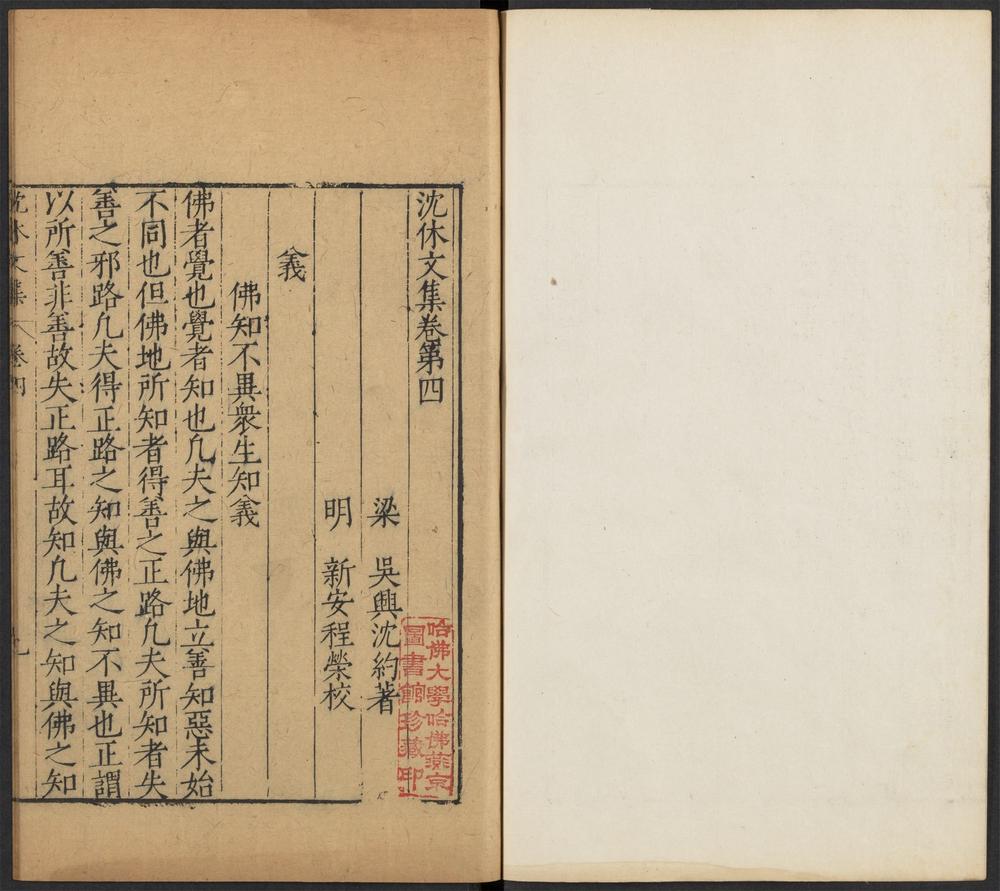 沈休文集卷第四
梁　吳興沈約著
明　新安程榮校
義
佛知不異衆生知義
佛者覺也覺者知也凢夫之與佛地立善知惡未始
不同也但佛地所知者得善之正路凢夫所知者失
善之邪路凢夫得正路之知與佛之知不異也正謂
以所善非善故失正路耳故知凢夫之知與佛之知
沈休文集　卷四
哈佛大學哈佛燕京
圖書館珍藏印